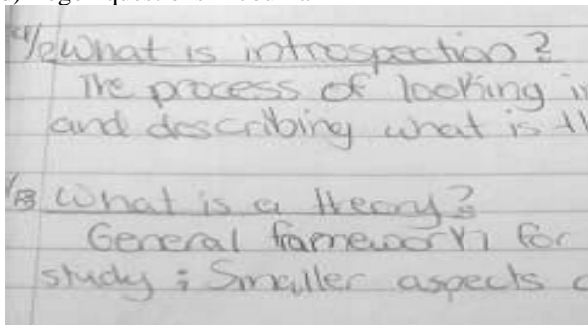 What is introspection?
The process of looking
and describing what is
What is a theory?
General framework for
study; Smaller aspects